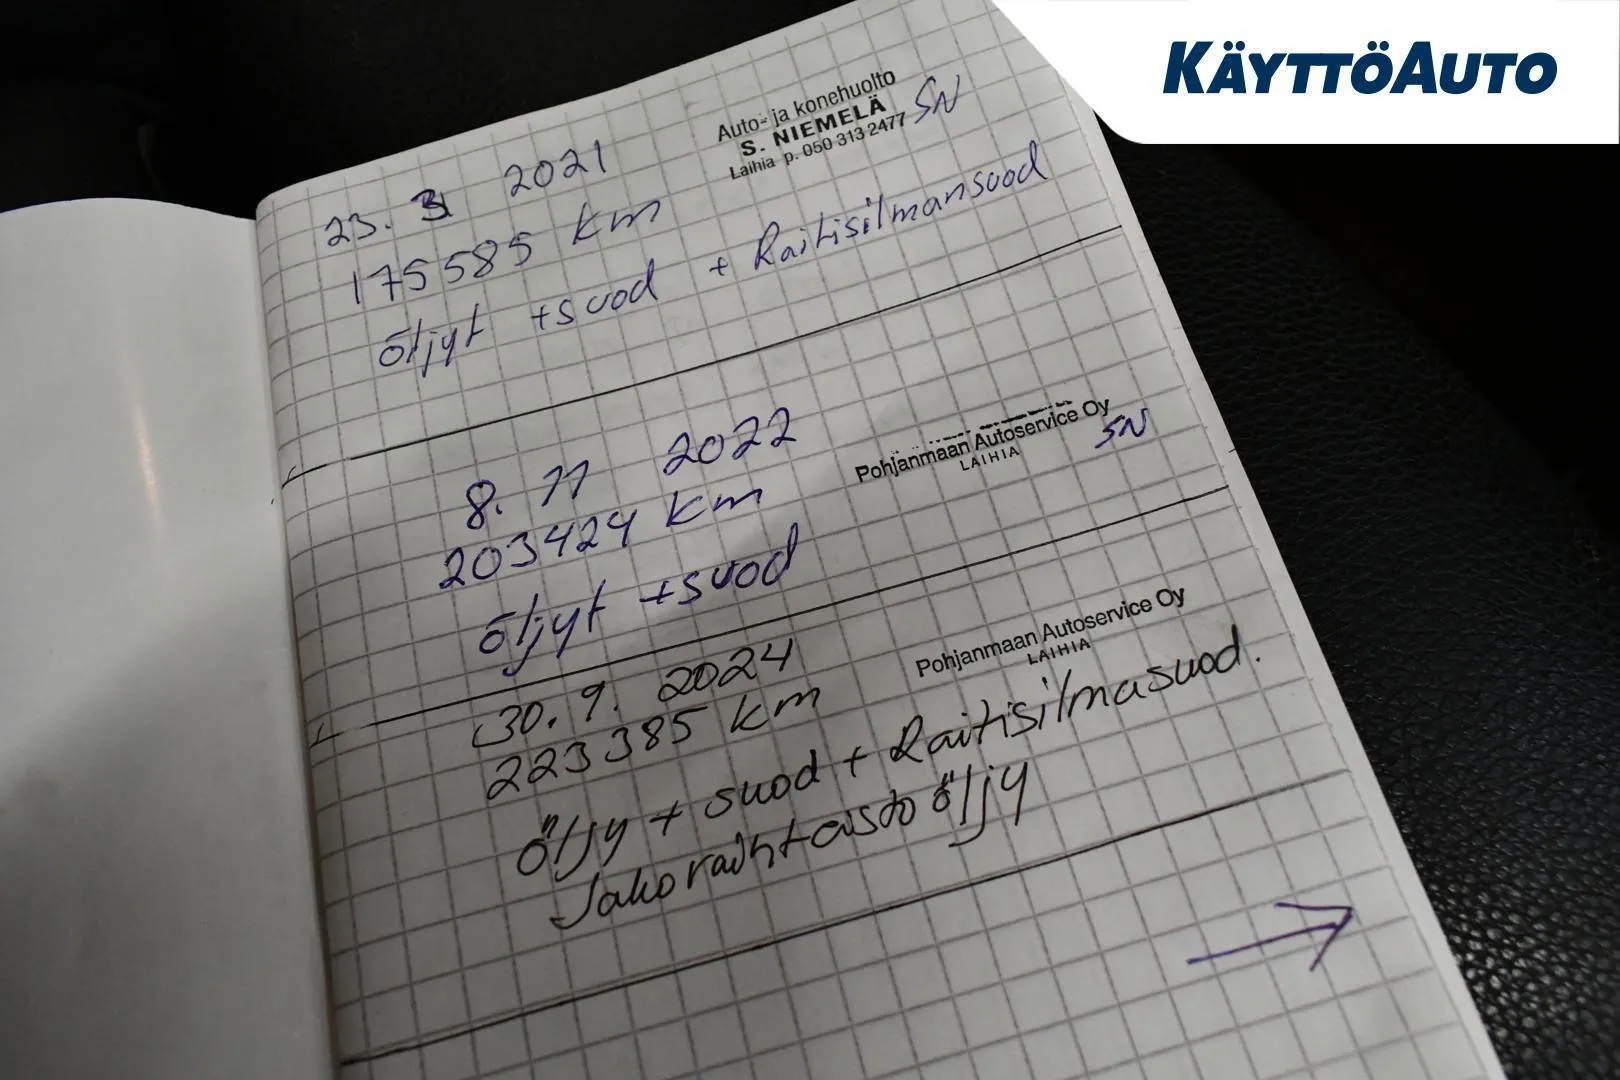 KÄYTTÖAUTO
Auto- ja konehuolto
S. NIEMELÄ
Laihia p. 050 313 2477
SN
23. 3 2021
175585 km
öljyt +suod + Raitisilmansuod
Pohjanmaan Autoservice Oy
LAIHIA
SN
8. 11 2022
203424 km
öljyt +suod
Pohjanmaan Autoservice Oy
LAIHIA
30. 9. 2024
223385 km
öljy + suod + Raitisilmasuod.
Jakoraihtaisto öljy